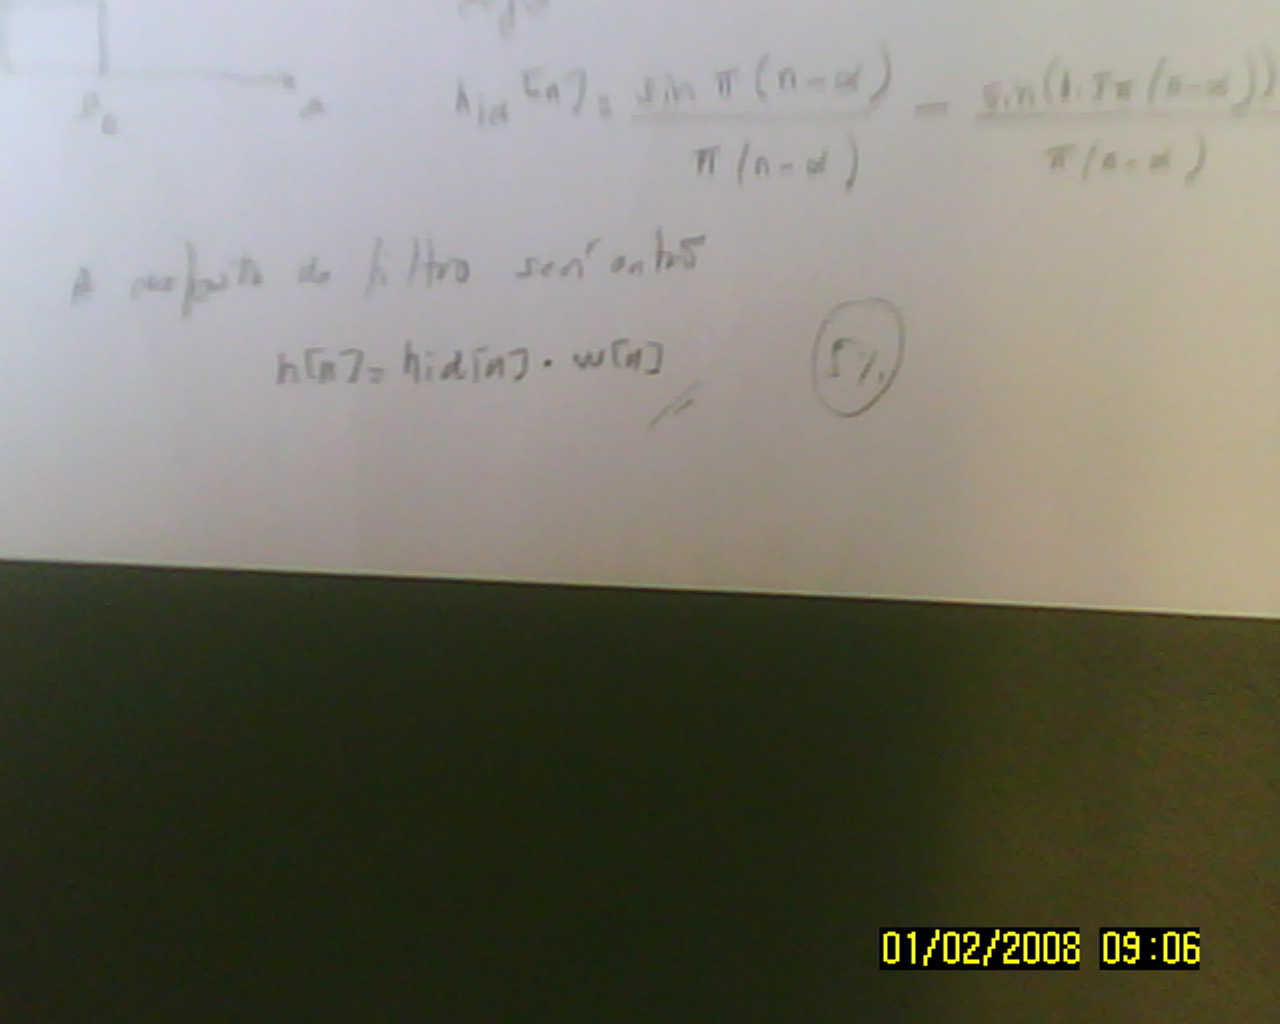 hid[n] = sin π(n-α) / π(n-α) - sin( π(n-α)) / π(n-α)
A resposta do filtro será então
h[n] = hid[n] · w[n]
5%
01/02/2008 09:06